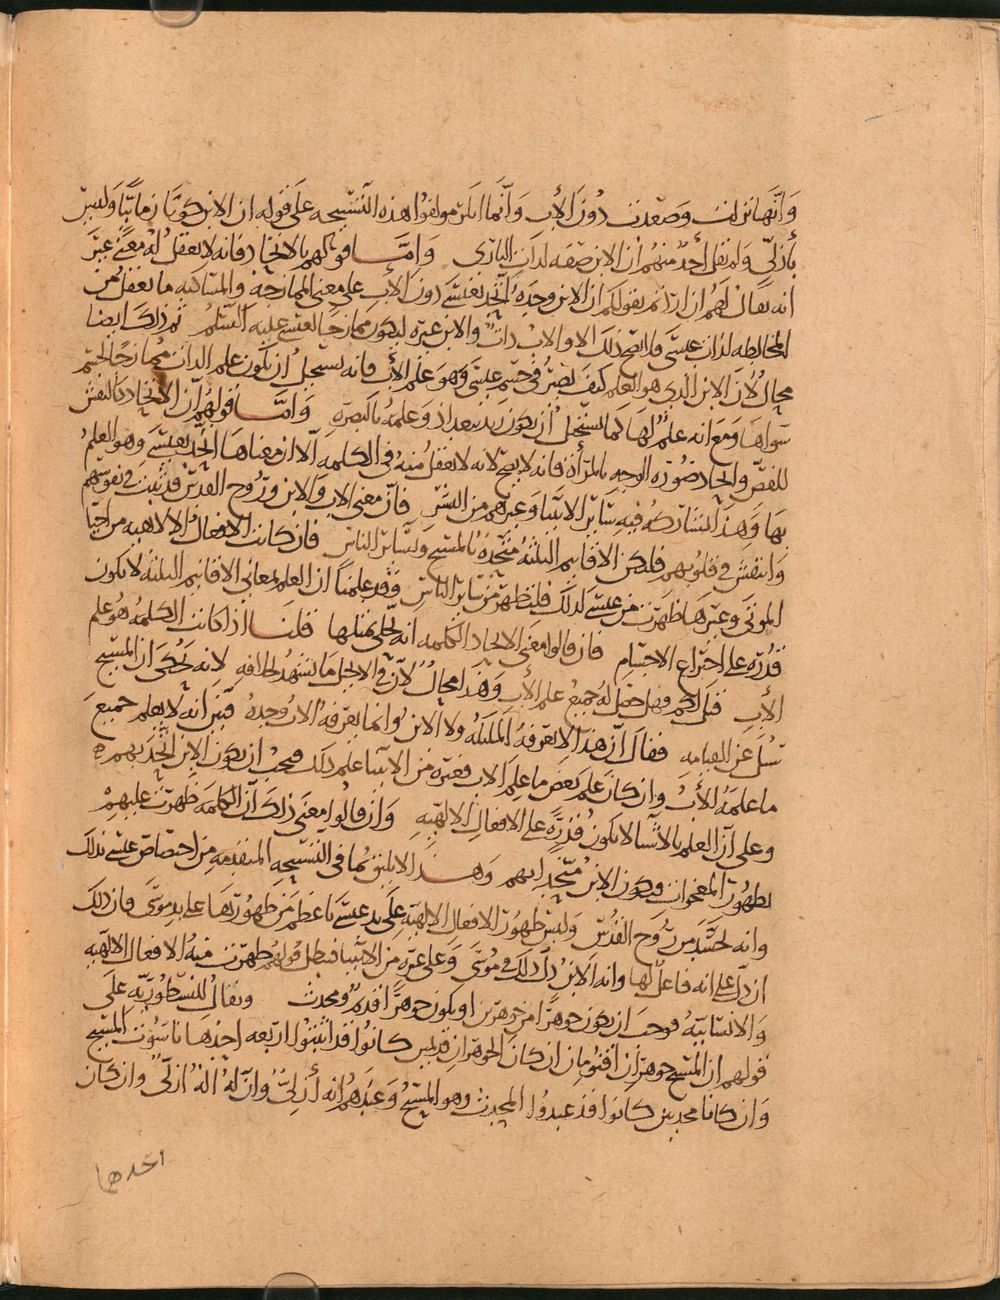 وَانَّها نزلت وصَعدت دُون الأب وَانَّما الزم مولفوا هذه التسبيحه على قوله ان الابن كونًا زمانيًّا وَليسَ
بأزليّ وَلم نقل أحدٌ منهُم ان الابن صفه لذات الباري وَامَّا قولهم بالاتحاد فانه لا يعقل له معنًى غير
انه يُقال لهُم ان اردتم بقولكم ان الابن وحدهُ اتّحد بعيسَى دون الأب على معنى الممازجة والمشابكه ما يعقل من
المخالطه لذات عيسَى فلا يصحّ ذلك الا والابُ ذاتٌ والابن غيره ليكون ممازجًا لعيسى عليه السَّلمُ ثم ذلك ايضا
محالٌ لانّ الابن الذي هو العلم كيفَ يصيرُ في جسم عيسَى وهو علم الأب فانه يستحيلُ ان يكون علم الذات ممازجًا لجسم
سواها وَمع انه علمٌ لها كما يستحيلُ أن يكون زيد ببغداذ وَعلمهُ بالبصره وَامَّا قولهم ان الاتحاد كالنقش
للفصّ واتحاد صُورَه الوجه بالمرأة فانه لا يصح لانه لا يعقل منهُ في الكلمه الّا ان معناها اتّحد بعيسَى وهو العلمُ
بها وَهذا المشاركهُ فيه سَائر الانبيا وَغيرهم من البشر فانّ معنى الاب وَالابن وروح القدس قد ثبت في نفوسهم
وَانتقش في قلوبهم فلتكن الاقانيم الثلثهُ متّحدةً بالمسيح وَبسَائر الناس فان كانت الافعالُ الالاهيه من احيا
الموتى وَغيرها ظهرت من عيسَى لذلك فلتظهر من سَائر الناسِ وَقد علمنا ان العلم لمعاني الاقانيم الثلثه لا يكون
قدرَه على اختراع الاجسَام فان قالوا معنى الاتحاد الكلمه انه تجلّى بمثلها قلنَا اذا كانت الكلمهُ هو علم
الأب قيل لهم فهل حصَل لهُ جميعُ علم الأب وَهذا محالٌ لانّ في الانجيل ما يشهدُ بخلافه لانه يُحكى ان المسيح
سُئل عن القيامه فقال انّ هذا لا يعرفهُ الملئكهُ ولا الابنُ وانما يعرفه الاب وحدهُ فبيّن انه لا يعلم جميعَ
ما علمَهُ الأبُ وان كان علمَ بعض ما علمَ الاب فغيره من الانبيا علم ذلك فيجب ان يكون الابن اتّحدَ بهم
وعلى انّ العلم بالاشيا لا يكون قُدرَةً على الافعال الالهيّه وَان قالوا معنى ذلك انّ الكلمه ظهرت عليهمْ
بظهُور المعجزات فيكون الابن متّحدا بهم وَهذا لا يليق بما في التسبيحه المتقدمه من اختصاص عيسَى بذلك
وانه تجسَّدَ من رُوح القُدُسْ وَليسَ ظهُور الافعال الالهيّه على يد عيسَى باعظمَ من ظهورها على يد موسَى فان ذلك
ان دلّ على انه فاعلٌ لها وانه الابنُ دلّ ذلك في موسَى وَعلى غيره من الانبيا فبطل قولهُم ظهرت منهُ الافعال الالهيه
والانسَانيّه فوجبَ ان يكون جوهرًا من جوهرين او يكون جوهرًا قديمٌ ومحدث ويقال للنسطوريّه على
قولهم ان المسيح جوهرَان اقنومان ان كان الجوهرَان قديمين كانوا قد اثبتوا اربعه احدها ناسُوت المسيح
وَان كانا محدثين كانوا قد عبدُوا المحدث وهو المسيحُ وَعندهُم انه أزليٌّ وَانّهُ الهٌ ازليٌّ وان كان
احدها